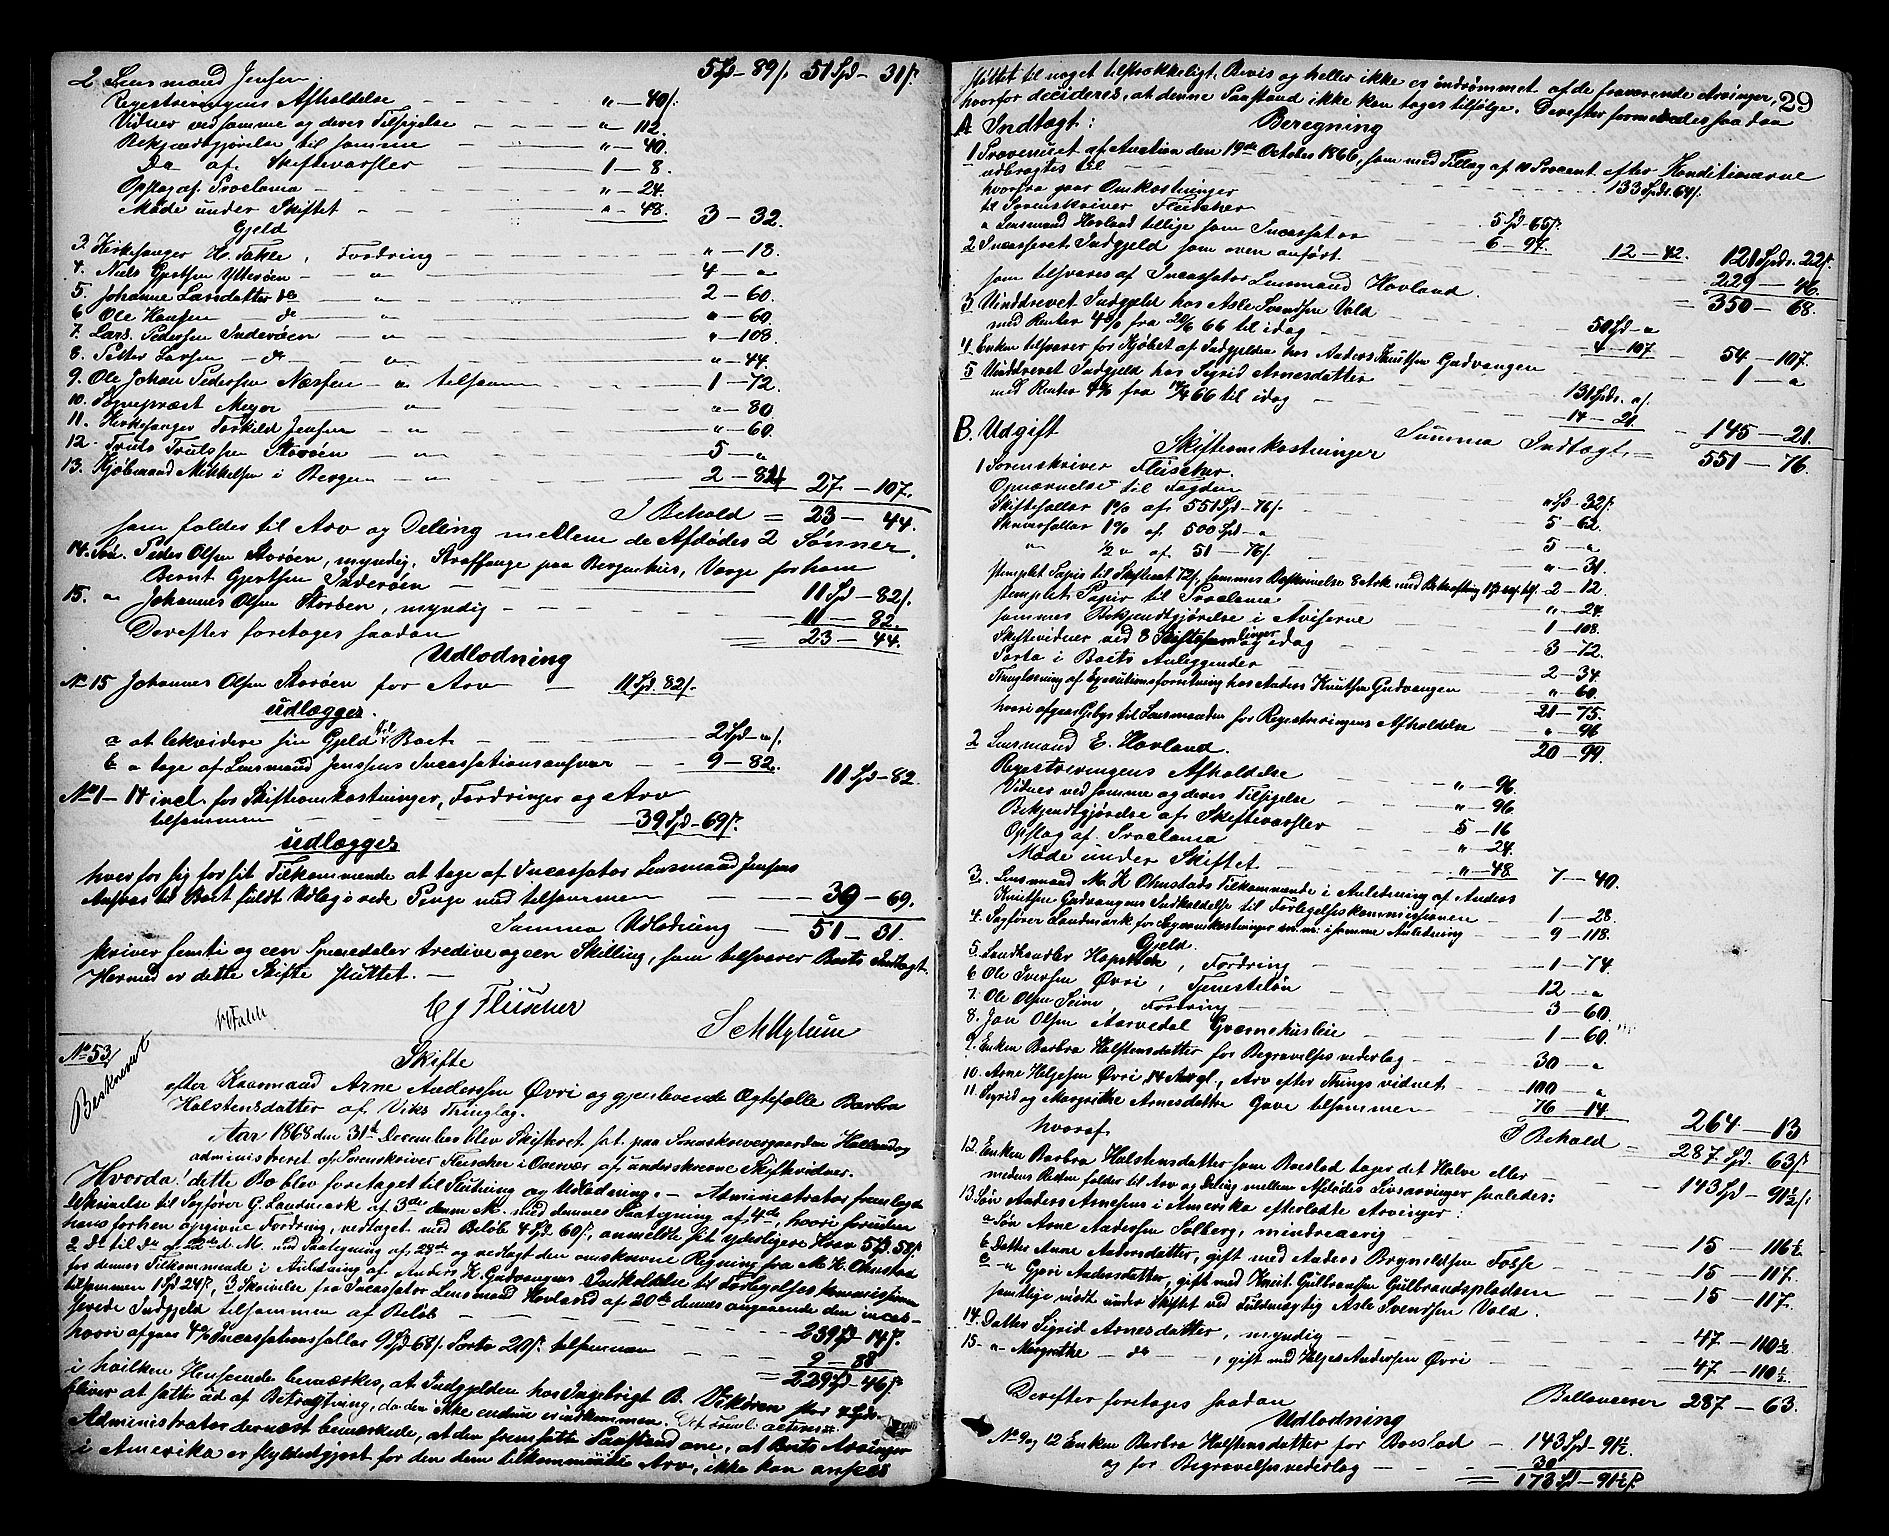 2 Lensmand Jensen 5 Spd - 89 ß. 51 Spd - 31 ß.
Registreringens Afholdelse " - 40 ß.
Vidner ved samme og deres Tilsigelse " - 112.
Bekjendtgjørelse til samme " - 40.
Do af Skiftevarsler 1 - 8.
Opslag af Proclama " - 24.
Møde under Skiftet " - 48. 3 - 32.
Gjeld
3. Kirkesanger H. Takle, Fordring " - 18.
4. Niels Gjertsen Ytterøen " 4 - "
5. Johanne Larsdatter do " 2 - 60.
6 Ole Hansen do " " - 60.
7. Lars Pedersen Inderøen " " - 108.
8. Petter Larsen do " " - 44.
9. Ole Johan Pedersen Næssen " tilsammen 1 - 72.
10. Sognepræst Meyer " " - 80
11. Kirkesanger Torkild Jensen " " - 60.
12. Truls Trulssen Storøen " 5 - "
13. Kjøbmand Mikkelsen i Bergen " 2 - 84 27 - 107.
I Behold = 23 - 44.
som falder til Arv og Deling mellem de Afdødes 2 Sønner.
14. Søn Peder Olsen Storøen, myndig, Straffange paa Bergenhus, Værge for ham
Bernt Gjertsen Inderøen 11 Spd - 82 ß.
15. " Johannes Olsen Storøen, myndig 11 - 82.
Derefter foretages saadan 23 - 44.
Udlodning
No 15 Johannes Olsen Storøen for Arv 11 Spd. 82 ß.
udlægges
a at likvidere sin Gjeld til Boet 2 Spd - " ß.
b " tage af Lensmand Jensens Incassationsansvar 9 - 82. 11 Spd - 82
No 1 - 14 incl. for Skifteomkostninger, Fordringer og Arv
tilsammen 39 Spd - 69 ß.
udlægges
hver for sig for sit Tilkommende at tage af Incassator Lensmand Jensens
Ansvar til Boet fuldt Udlæg i rede Penge med tilsammen 39 - 69.
Summa Udlodning 51 - 31.
skriver femti og een Speciedaler tredive og een Skilling, som tilsvarer Boets Indtægt.
Hermed er dette Skifte sluttet. -
C J Fleischer
No 53
Beskrevet
Skifte
efter Kaarmand Arne Anderssen Øvri og gjenlevende Ægtefælle Barbra
Halstensdatter af Viks Thinglag.
Aar 1868 den 31te December blev Skifteret sat paa Sorenskrivergaarden
administreret af Sorenskriver Fleischer i Overvær af underskrevne Skiftevidner.
Hvorda: dette Bo blev foretaget til Slutning og Udlodning. - Administrator fremlagde
Skrivelse til Sagfører G. Landmark af 3die denne M. med dennes Paategning af 4de, hvori foruden
hans forhen opgivne Fordring, vedtaget med Beløb 4 Spd 60 ß, anmeldte sit yderligere Krav 5 Spd 58 ß.
2 Do til Do af 22de d. M. med Paategning af 28de og vedlagt den omskrevne Regning fra M. K. Ohnstad
for dennes Tilkommende i Anledning af Anders K. Gudvangens Indkaldelse til Forligelseskommissionen
tilsammen 1 Spd 24 ß, 3 Skrivelse fra Incassator Lensmand Hovland af 20de dennes angaaende den incas-
serede Indgjeld tilsammen af Beløb 239 Spd - 14 ß.
hvori afgaar 4% Incassationssallar 9 Spd 68 ß. Porto 20 ß. tilsammen 9 - 88
= 229 Spd - 46 ß
i hvilken Henseende bemærkes, at Indgjelden hos Ingebrigt B. Vikøren stor 4 Spd.
bliver at sætte ud af Betragtning, da den ikke endnu er indkommen.
Administrator dernæst bemærkede, at den fremsatte Paastand om, at Boets Arvinger
i Amerika er fyldestgjort for den dem tilkommende Arv, ikke kan ansees
29
støttet til noget tilstrækkeligt Bevis og heller ikke er indrømmet af de fraværende Arvinger,
hvorfor decideres, at denne Paastand ikke kan tages tilfølge. Derefter formeredes saadan
Beregning
A Indtægt:
1 Provenuet af Auction den 19de October 1866, som med Tillæg af 10 Procent efter Konditionerne
udbragtes til 133 Spdr. 64 ß.
hvorfra gaar Omkostninger
til Sorenskriver Fleischer 5 Spd - 65 ß.
" Lensmand Hovland tillige som Incassator 6 - 97. 12 - 42. 121 Spdr. 22 ß.
2 Incasseret Indgjeld som oven anført 229 - 46.
som tilsvares af Incassator Lensmand Hovland. 350 - 68.
3 Uinddrevet Indgjeld hos Asle Svendsen Vold 50 Spd - "
med Renter 4% fra 20/6 66 til idag 4 - 107. 54 - 107.
4. Enken tilsvarer for Kjøbet af Indgjelden hos Anders Knutsen Gudvangen 1 - "
5 Uinddrevet Indgjeld hos Sigrid Arnesdatter 131 Spdr. " ß.
med Renter 4% fra 14/4 66 til idag 14 - 21. 145 - 21.
Summa Indtægt = 551 - 76.
B. Udgift
Skifteomkostninger
1 Sorenskriver Fleischer.
Opnævnelse til Fogden " Spd - 32 ß.
Skiftesallar 1% af 551 Spd - 76 ß. 5 - 62.
Skriversallar 1% af 500 Spd - " 5 - "
" ½ " af 51 - 76 ß. " - 31.
stemplet Papir til Skifteact 72 ß, sammes Beskrivelse 8 Ark med Bekræftning 2 - 12.
stemplet Papir til Proclama " - 24.
sammes Bekjendtgjørelse i Aviserne 1 - 108.
Skiftevidner ved 8 Skiftesamlinger og idag 3 - 72.
Porto i Boets Anliggender 2 - 34.
Thinglæsning af Executionsforretning hos Anders Knutsen Gudvangen " - 60.
21 - 75.
hvori afgaar Gebyr til Lensmanden for Registreringens Afholdelse " - 96
20 - 99.
2 Lensmand E. Hovland.
Registreringens Afholdelse " - 96.
Vidner ved samme og deres Tilsigelse " - 96.
Bekjendtgjørelse af Skiftevarsler 5 - 16
Opslag af Proclama " - 24.
Møde under Skiftet " - 48 7 - 40.
3. Lensmand M. K. Ohnstads Tilkommende i Anledning af Anders
Knutsen Gudvangens Indkaldelse til Forligelseskommissionen 1 - 28.
4. Sagfører Landmark for Sagsomkostninger m.m. i samme Anledning 9 - 118.
Gjeld.
5. Landhandler Hopstock, Fordring 1 - 74.
6 Ole Iversen Øvri, Tjenesteløn 12 - "
7. Ole Olsen Seim, Fordring 3 - 60.
8. Jon Olsen Aarvedal 1 - 60.
9. Enken Barbra Halstensdatter for Begravelsesvederlag 30 - "
10. Arne Heljesen Øvri, 14 Aar gl., Arv efter Things vidnet 100 - "
11. Sigrid og Margrethe Arnesdøttre Gave tilsammen 76 - 14. 264 - 13
I Behold = 287 Spd. 63 ß
hvoraf
12. Enken Barbra Halstensdatter som Boeslod tager det Halve eller 143 Spd - 91½ ß.
medens Resten falder til Arv og Deling mellem Afdødes Livsarvinger saaledes:
13. Søn Anders Arnesens i Amerika efterladte Arvinger:
a Søn Arne Andersen Solberg, mindreaarig 15 - 116½
b Datter Anne Andersdatter, gift med Anders Brynildsen Fosse 15 - 117.
c " Gjøri Andersdatter, gift med Knut Gulbransen Gulbrandspladsen 15 - 117.
samtlige mødt under Skiftet ved Fuldmægtig Asle Svendsen Vold.
14. Datter Sigrid Arnesdatter, myndig 47 - 110½
15. " Margrethe do, gift med Heljer Andersen Øvri 47 - 110½
Derefter foretages saadan Balancerer 287 - 63.
Udlodning
No 9 og 12 Enken Barbra Halstensdatter for Boeslod 143 Spd - 91½
og for Begravelsesvederlag 30
173 Spd - 91½ ß.